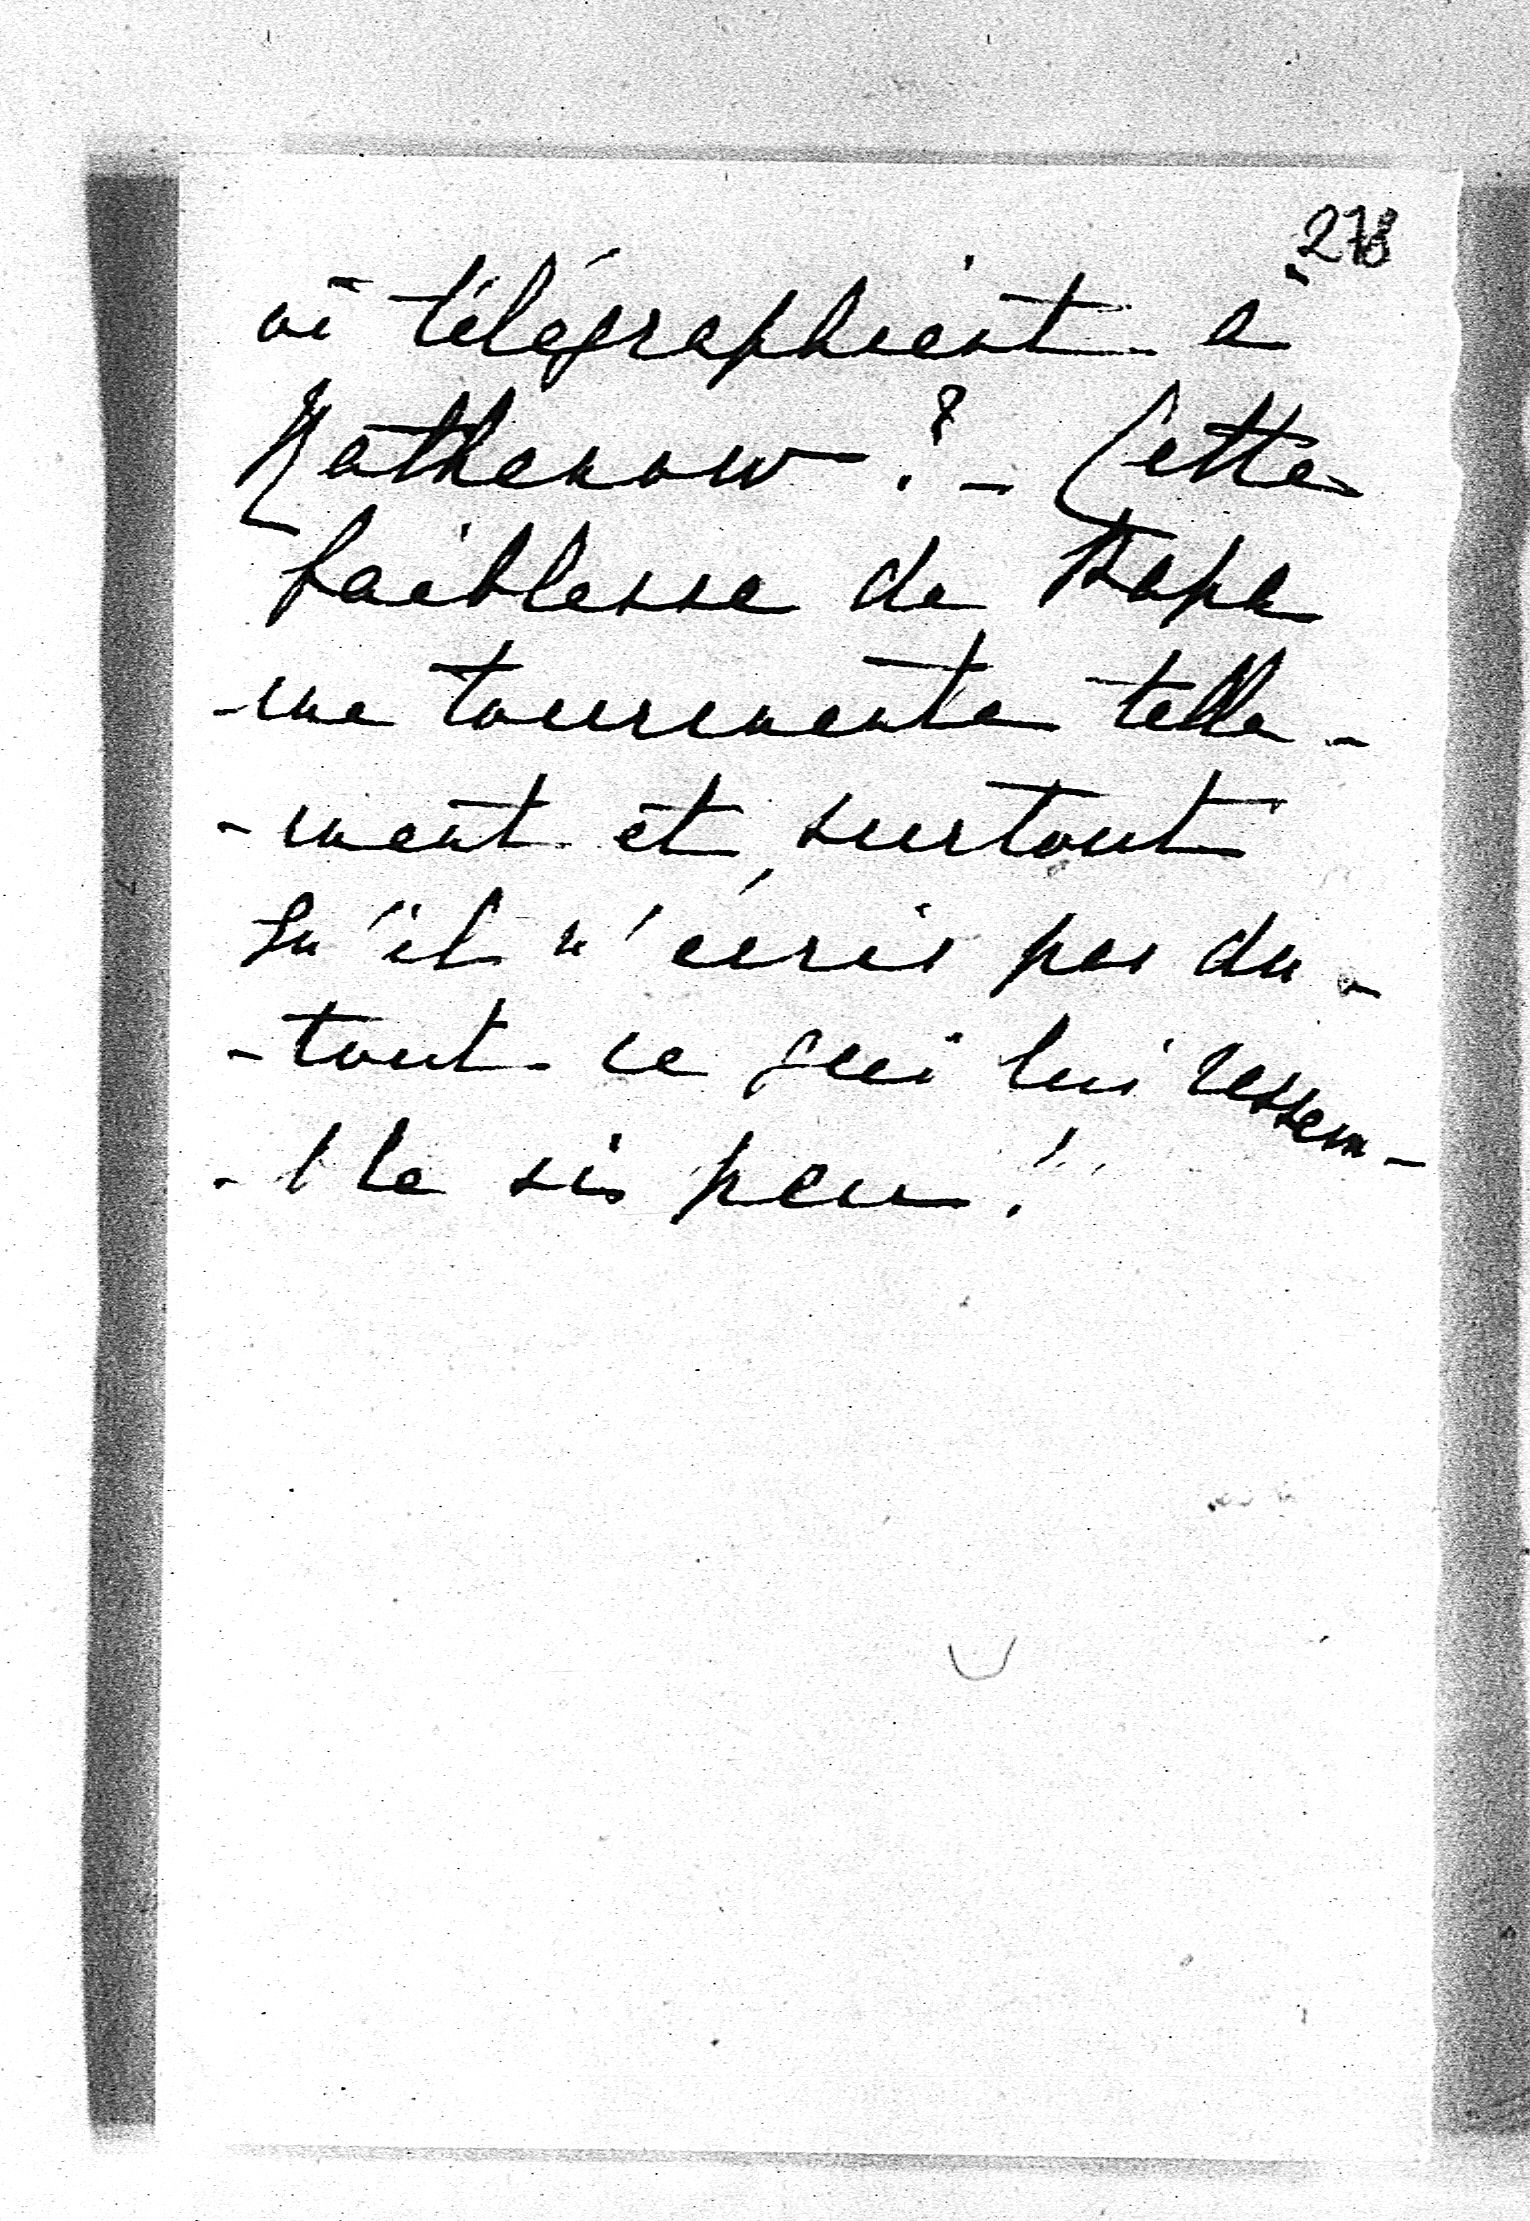 278
ai télégraphient à
Rathenow? - Cette
faiblesse de Papa
me tourmente telle-
-ment et surtout
qu'il n'écris pas du-
-tout ce qui lui ressem-
-ble si peu!